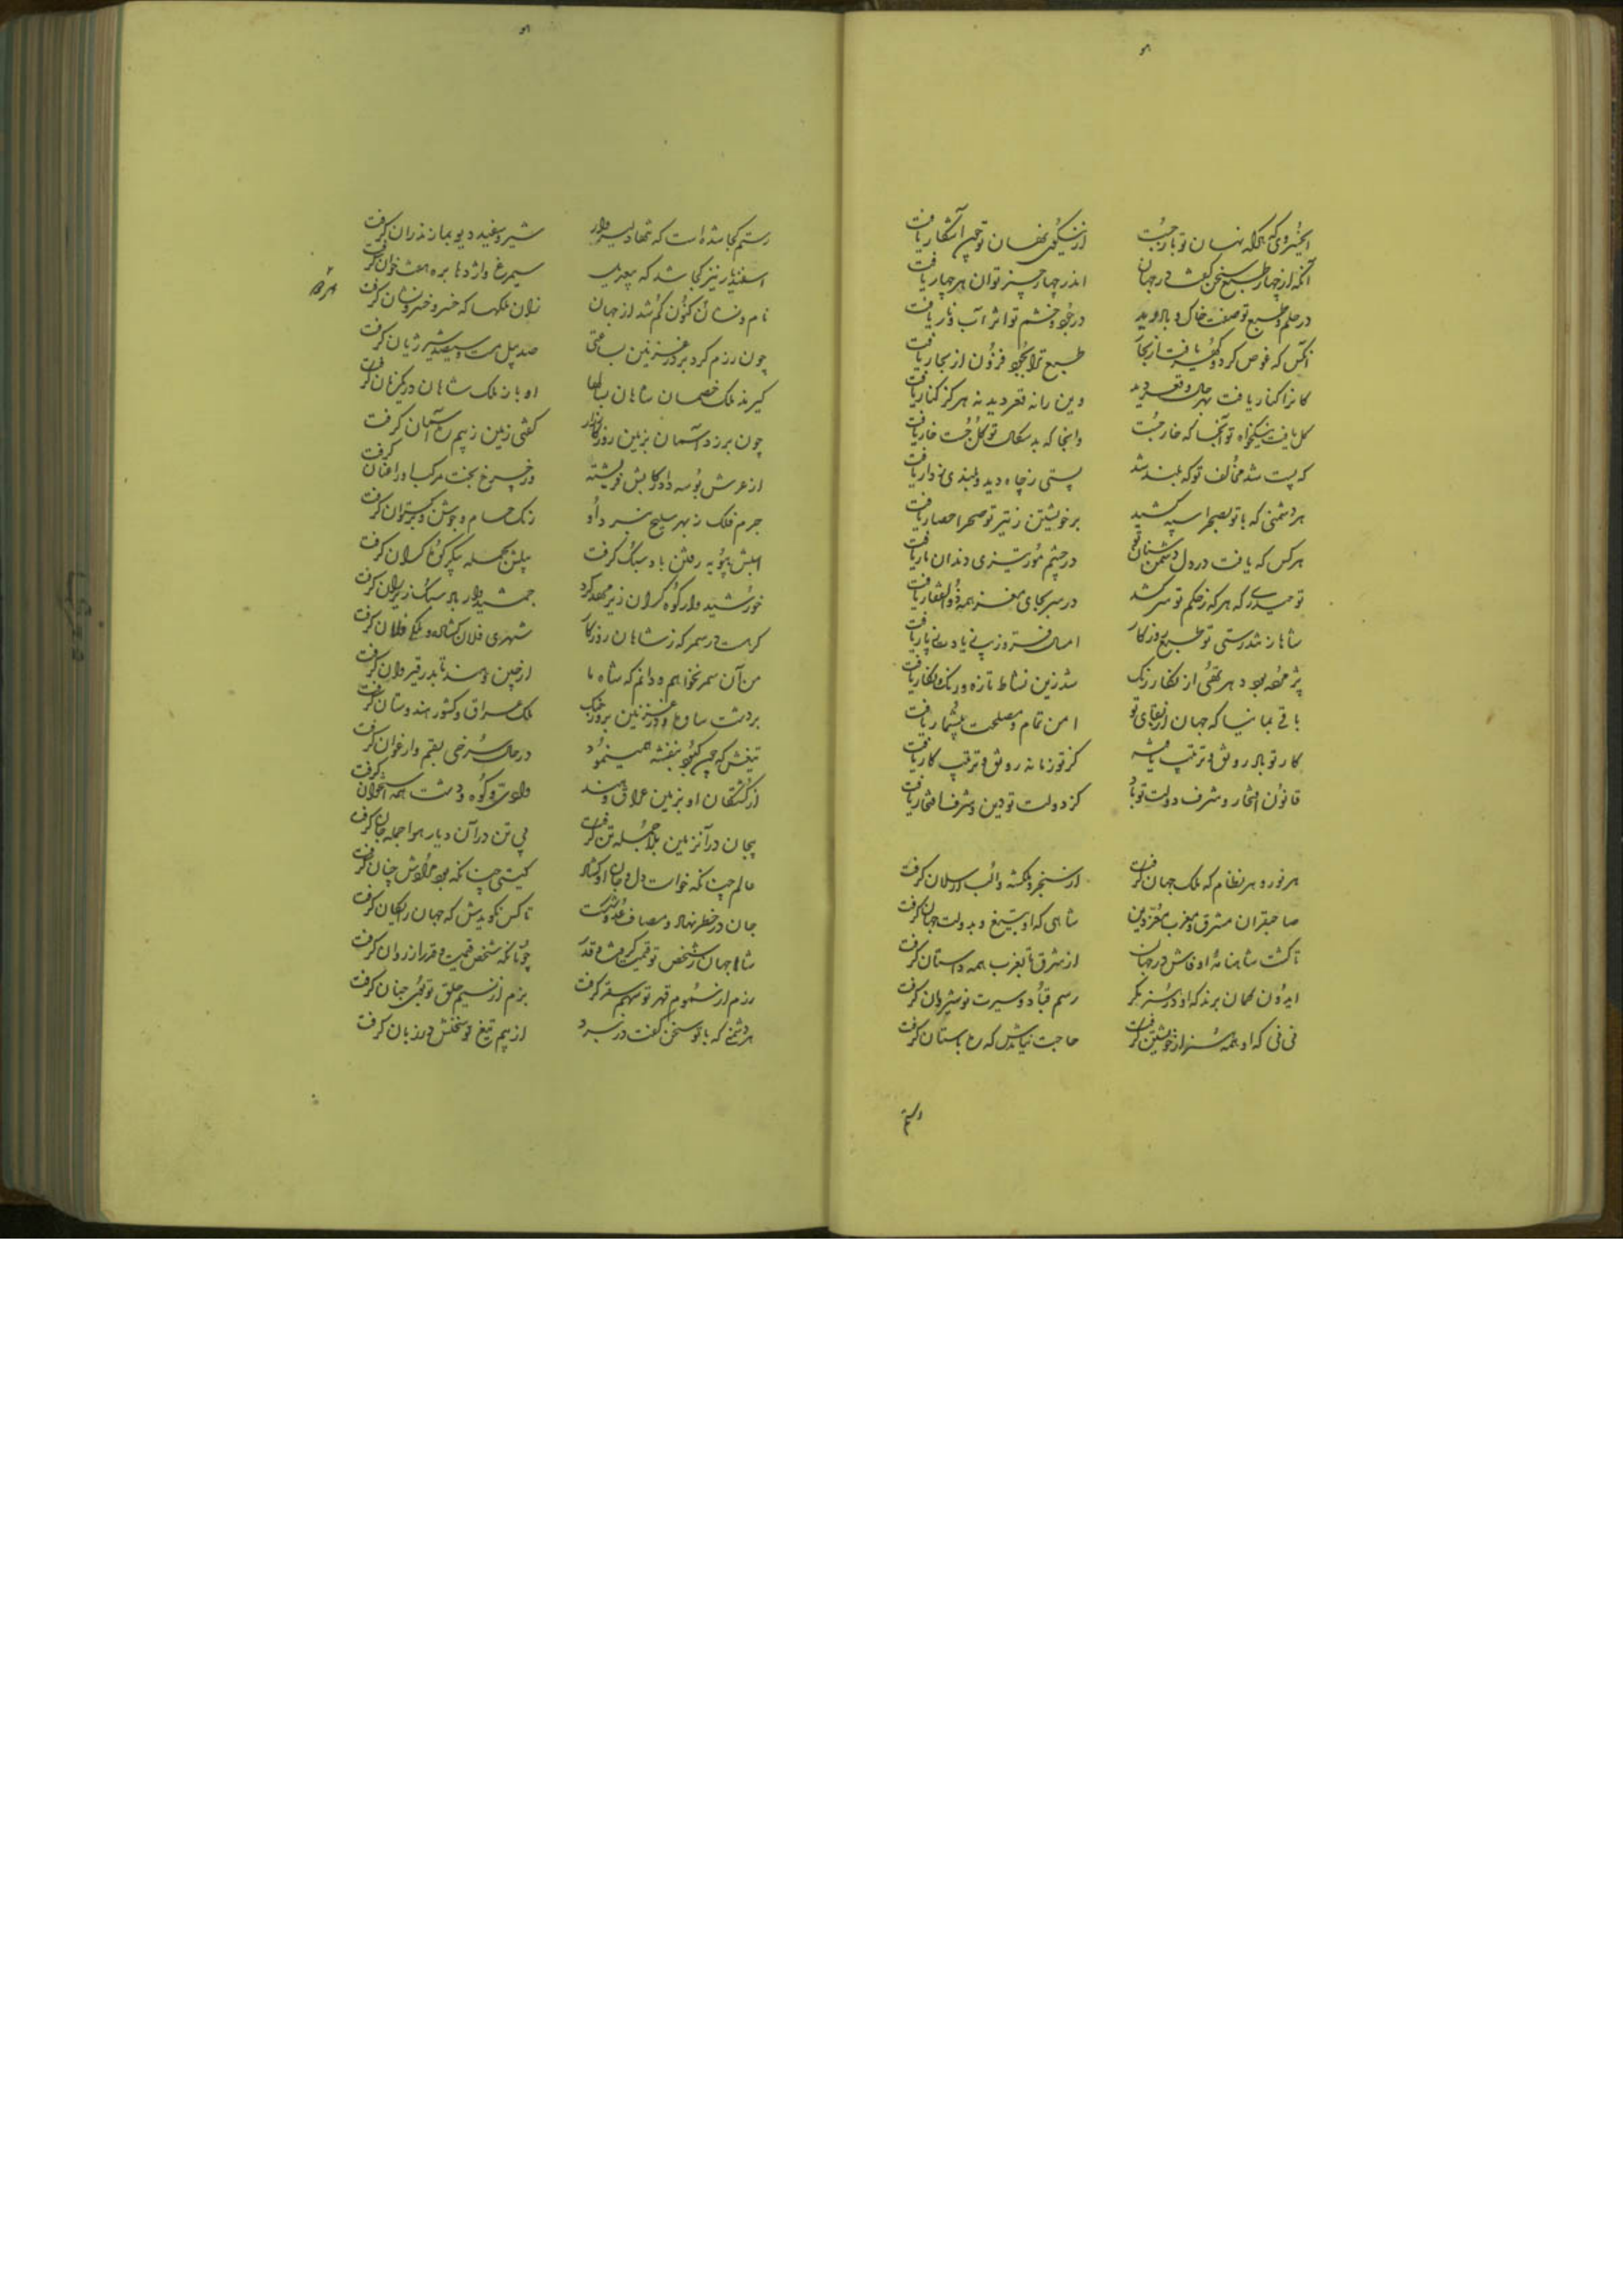 ای خسروی که هرکه نهان تو بازجست از نیکویی نهان تو چون آشکار یافت
آنکه از چهار طبع سخن گفت در جهان اندر چهار چیز تو آن هر چهار یافت
در حلم و طبع تو صفت خاک و باد دید در جود و خشم تو اثر آب و نار یافت
آنکس که غوص کرد و گهر یافت از بحار طبع ترا بجود فزون از بحار یافت
کانرا کنار یافت بهر حال و قعر دید وین را نه قعر دید نه هرگز کنار یافت
گل یافت نیکخواه تو آنجا که خار جست وانجا که بدسگال تو گل جست خار یافت
که پست شد مخالف تو که بلند شد پستی ز چاه دید و بلندی ز دار یافت
هر دشمنی که با تو بصحرا سپه کشید برخویشتن ز تیر تو صحرا حصار یافت
هرکس که یافت در دل دشمن سنان تو در چشم مور تیزی دندان مار یافت
تو حیدری که هرکه ز حکم تو سر کشد در سر بجای مغز همه ذوالفقار یافت
شاها ز تندرستی تو طبع روزگار امسال
پژمرده بود هر تهی از نگار و رنگ شد زین نشاط تازه و رنگ و نگار یافت
باقی بمانیا که جهان از بقای تو امن تمام و مصلحت بیشمار یافت
کار تو باد رونق و ترتیب یافته کز تو زمانه رونق و ترتیب کار یافت
قانون افتخار و شرف دولت تو باد کز دولت تو دین و شرف افتخار یافت
هر نور و هر نظام که ملک جهان گرفت از سنجر و ملکشه و الب ارسلان گرفت
صاحبقران مشرق و مغرب معز دین شاهی که او بتیغ و بدولت جهان گرفت
تا گشت شاهنامه او فاش در جهان از شرق تا بغرب همه داستان گرفت
ایدون گمان برند که او در هنر مگر رسم قباد و سیرت نوشیروان گرفت
نی نی که او همه هنر از خویشتن گرفت حاجت نیامدش که ره باستان گرفت
رستم
رستم کجا شده است که تنها دلیروار شیر و سفید دیو بمازندران گرفت
اسفندیار نیز کجا شد که سیمرغ و اژدها بره هفتخوان گرفت
نام و نشان کنون گم شد از جهان زان ملکها که خسرو خسرونشان گرفت
چون رزم کرد بر در غزنین بساعتی صد پیل مست و سیصد شیر ژیان گرفت
گیرند ملک خصمان شاهان بسالها او باز ملک شاهان در یکزمان گرفت
چون برزد آسمان بزمین روز کارزار گفتی زمین ز بیم ره آسمان گرفت
از عرش بوسه داد رکابش فریشته وز چرخ بخت مرکب او را عنان گرفت
جرم فلک ز بهر سلیح نبرد او رنگ حسام و جوشن و برگستوان گرفت
اسبش بپویه رفتن باد سبک گرفت پیلش بحمله پیکر کوه گران گرفت
خورشیدوار کوه گران زیر مهد کرد جمشیدوار باد سبک زیر ران گرفت
گر هست در سمر که ز شاهان روزگار شهری فلان گشاد و ملکی فلان گرفت
من آن سمر نخواهم و دانم که شاه ما از چین و هند تا بدر قیروان گرفت
بر دشت ساوه و در غزنین بروز جنگ ملک عراق و کشور هندوستان گرفت
تیغش که چون کبود بنفشه همی نمود در حال سرخی بقم و ارغوان گرفت
از کشتگان او بزمین عراق و هند وادی و کوه و دشت همه استخوان گرفت
بیجان در آن زمین بلا جمله تن گرفت بی تن در آن دیار هوا جمله جان گرفت
عالم چنانکه خواست دل و جان او گشاد گیتی چنانکه بود مرادش چنان گرفت
جان در خطر نهاد و مصاف عدو شکست تا کس نگویدش که جهان رایگان گرفت
شاها جهان ز شخص تو قیمت گرفت و قدر چونانکه شخص قیمت و قدر از روان گرفت
رزم از سموم قهر تو سهم سقر گرفت بزم از نسیم خلق تو بوی جنان گرفت
هر دشمنی که با تو سخن گفت در نبرد از بیم تیغ تو سخنش در زبان گرفت